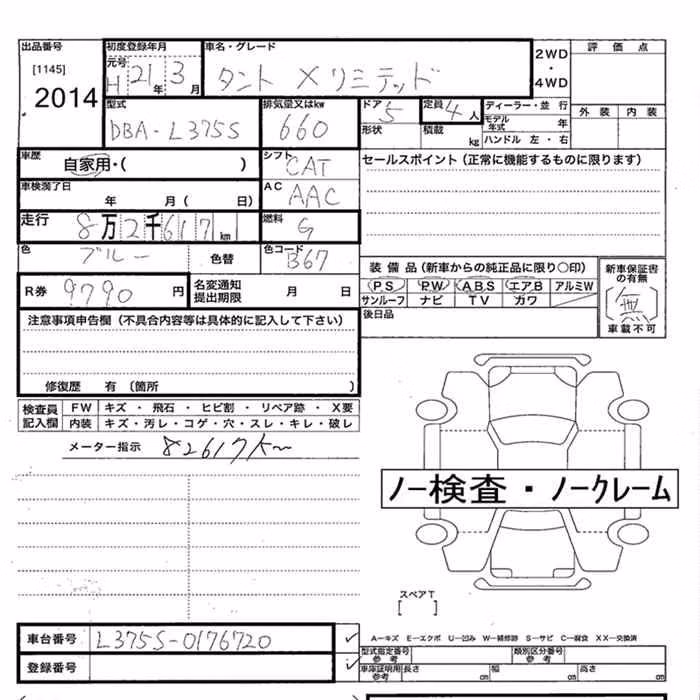 出品番号
[1145]
2014
初度登録年月
元号
H 21年 3月
車名・グレード
タント Xリミテッド
2WD
・
4WD
評価点
外装 内装
型式
DBA-L375S
排気量又はkw
660
ドア
5
定員
4人
形状
積載
kg
ディーラー・並行
モデル年式 年
ハンドル 左・右
車歴
自家用・( )
シフト
CAT
セールスポイント(正常に機能するものに限ります)
車検満了日
年 月( 日)
AC
AAC
走行
8万2千617km
燃料
G
色
ブルー
色替
色コード
B67
R券 9790円
名変通知
提出期限
月 日
装備品(新車からの純正品に限り○印)
PS PW ABS エアB アルミW
サンルーフ ナビ TV カワ
新車保証書
の有無
無
車載不可
後日品
注意事項申告欄(不具合内容等は具体的に記入して下さい)
修復歴 有(箇所 )
検査員
記入欄
FW キズ・飛石・ヒビ割・リペア跡・X要
内装 キズ・汚レ・コゲ・穴・スレ・キレ・破レ
メーター指示 82617K
ノー検査・ノークレーム
スペアT
[ ]
車台番号 L375S-0176720
登録番号
A−キズ E−エクボ U−凹み W−補修跡 S−サビ C−腐食 XX−交換済
型式指定番号
参考
類別区分番号
参考
車庫証明用
参考
長さ cm 幅 cm 高さ cm